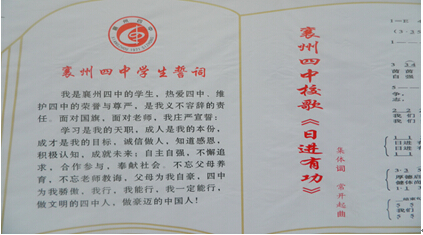 襄州四中学生誓词
我是襄州四中的学生，热爱四中、维
护四中的荣誉与尊严，是我义不容辞的责
任。面对国旗，面对老师，我庄严宣誓：
学习是我的天职，成人是我的本份，
成才是我的目标，诚信做人，知道感恩，
积极认知，成就未来；自主自强，不懈追
求，合作参与，奉献社会。不忘父母养
育，不忘老师教诲，父母为我自豪，四中
为我骄傲，我行，我能行，我一定能行，
做文明的四中人，做豪迈的中国人！
襄州四中校歌《日进有功》
集体词 常开起曲
自强
我们
我们
日进
日进
厚德
健体
我们
我们